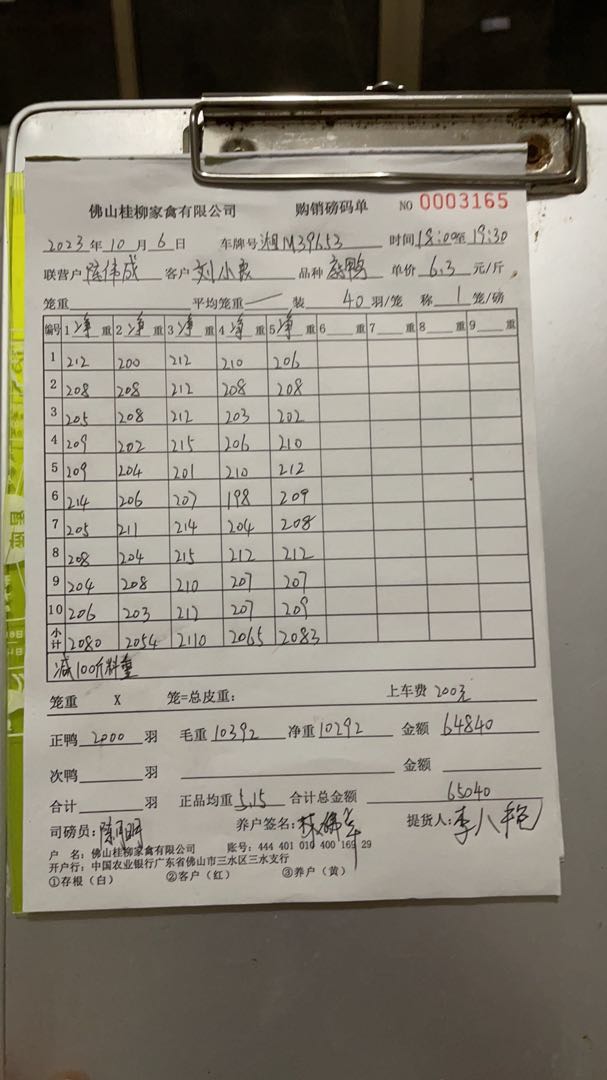 佛山桂柳家禽有限公司 购销磅码单 NO 0003165
2023年10月6日 车牌号湘M39653 时间18:00至19:30
联营户陈伟成 客户刘小良 品种 鸭 单价6.3元/斤
笼重 平均笼重 装40羽/笼 称1笼/磅
编号 1净重 2净重 3净重 4净重 5净重 6重 7重 8重 9重
1 212 200 212 210 206
2 208 208 212 208 208
3 205 208 212 203 202
4 209 202 215 206 210
5 209 204 201 210 212
6 214 206 207 198 209
7 205 211 214 204 208
8 208 204 215 212 212
9 204 208 210 207 207
10 206 203 212 207 209
小计 2080 2054 2110 2065 2083
减100斤料重
笼重 X 笼=总皮重: 上车费 200元
正鸭 2000 羽 毛重 10392 净重 10292 金额 64840
次鸭 羽 金额
合计 羽 正品均重 5.15 合计总金额 65040
司磅员: 养户签名: 提货人:
户 名: 佛山桂柳家禽有限公司 账号: 444 401 010 400 169 29
开户行: 中国农业银行广东省佛山市三水区三水支行
①存根(白) ②客户(红) ③养户(黄)